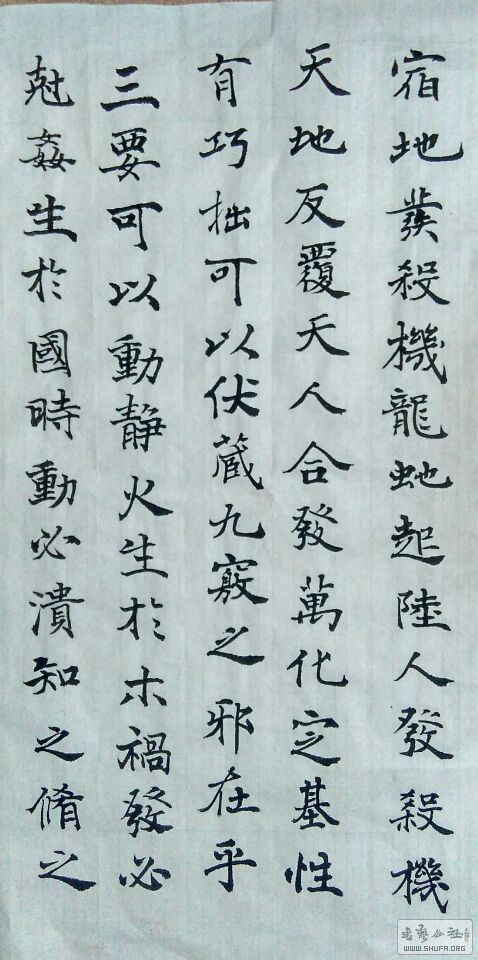 宿地發殺機龍虵起陸人發殺機
天地反覆天人合發萬化定基性
有巧拙可以伏蔵九竅之邪在乎
三要可以動静火生於木禍發必
尅姦生於國時動必潰知之脩之
書藝公社
WWW.SHUFA.ORG